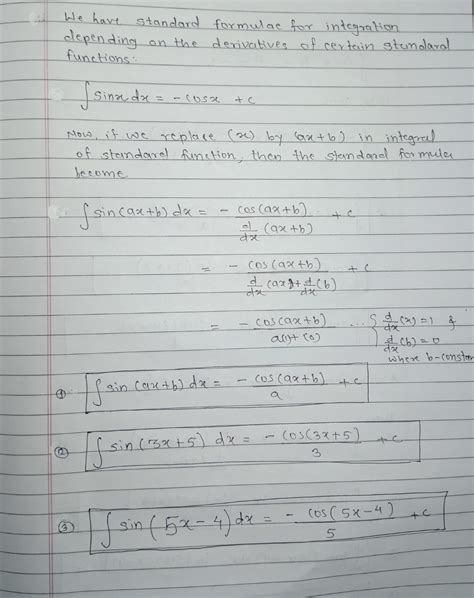 We have standard formulae for integration
depending on the derivatives of certain standard
functions:
∫ sinx dx = - cosx + c
Now, if we replace (x) by (ax+b) in integral
of standard function, then the standard formula
become
∫ sin(ax+b) dx = - cos(ax+b) / d/dx (ax+b) + c
= - cos(ax+b) / d/dx (ax) + d/dx (b) + c
= - cos(ax+b) / a(1) + (0) ... { d/dx (x) = 1 &
d/dx (b) = 0
where b-constan
① ∫ sin(ax+b) dx = - cos(ax+b) / a + c
② ∫ sin(3x+5) dx = - cos(3x+5) / 3 + c
③ ∫ sin(5x-4) dx = - cos(5x-4) / 5 + c